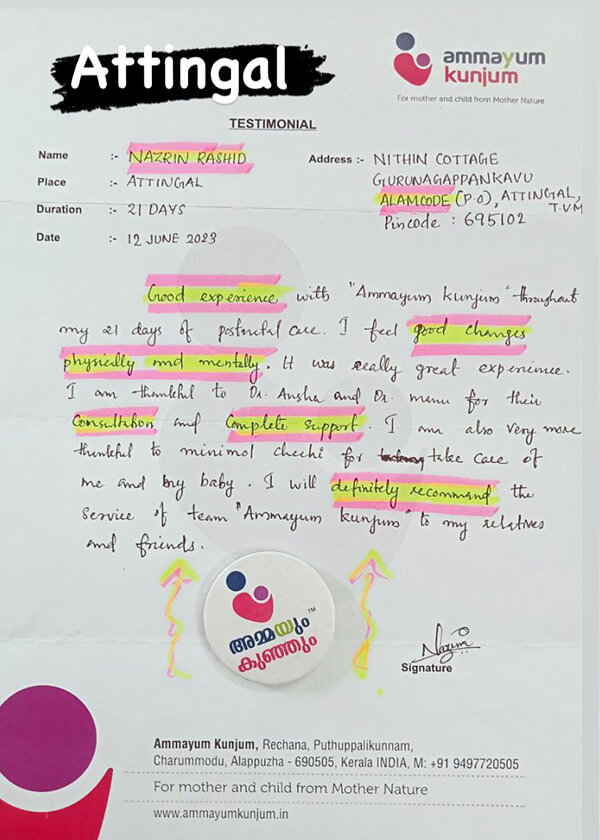 Attingal
ammayum
kunjum
For mother and child from Mother Nature
TESTIMONIAL
Name :- NAZRIN RASHID
Address :- NITHIN COTTAGE
GURUNAGAPPANKAVU
ALAMCODE (P.O), ATTINGAL,
T.VM
Pincode : 695102
Place :- ATTINGAL
Duration :- 21 DAYS
Date :- 12 JUNE 2023
Good experience with "Ammayum kunjum" throughout
my 21 days of postnatal care. I feel good changes
physically and mentally. It was really great experience.
I am thankful to Dr. Ansha and Dr. manu for their
Consultation and Complete support. I am also very more
thankful to minimol chechi for take care of
me and my baby. I will definitely recommand the
service of team "Ammayum kunjum" to my relatives
and friends.
അമ്മയും TM
കുഞ്ഞും
Nazrin
Signature
Ammayum Kunjum, Rechana, Puthuppalikunnam,
Charummodu, Alappuzha - 690505, Kerala INDIA, M: +91 9497720505
For mother and child from Mother Nature
www.ammayumkunjum.in